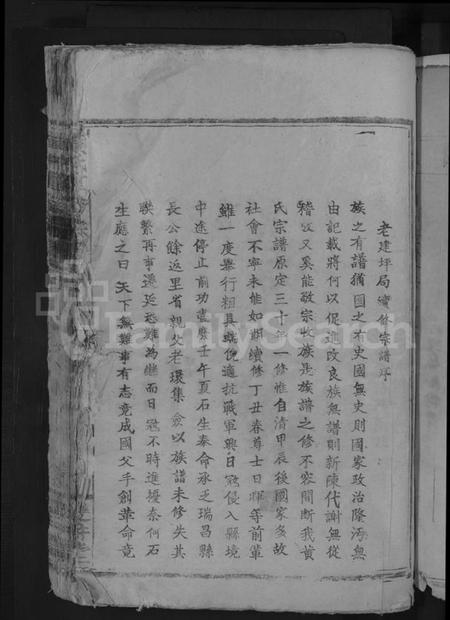 老建坪局續修宗譜序
族之有譜猶國之有史國無史則國家政治隆污無
由記載將何以促進改良族無譜則新陳代謝無從
稽攷又奚能敬宗收族是族譜之修不容間斷我黃
氏宗譜原定三十年一修惟自清甲辰後國家多故
社會不寧未能如期續修丁丑春尊士日暉等前輩
雖一度舉行粗具端倪適抗戰軍興日寇侵入縣境
中途停止前功盡廢壬午夏石生奉命承乏瑞昌縣
長公餘返里省親父老環集僉以族譜未修失其
聯繫再事遷延恐難為繼而日寇不時進擾奈何石
生應之曰天下無難事有志竟成國父手創革命竟
FamilySearch